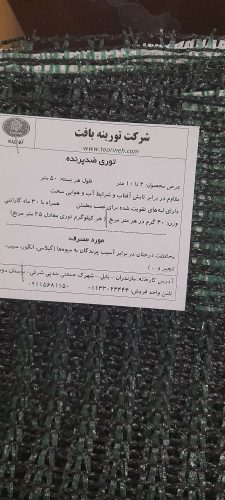 تورینه
شرکت تورینه بافت
www.toorineh.com
توری ضدپرنده
عرض محصول: ۲ تا ۱۰ متر طول هر بسته: ۵۰ متر
مقاوم در برابر تابش آفتاب و شرایط آب و هوایی سخت
دارای لبه‌های تقویت شده برای نصب مطمئن همراه با ۳۰ ماه گارانتی
وزن: ۴۰ گرم در هر متر مربع (هر کیلوگرم توری معادل ۲۵ متر مربع)
مورد مصرف:
محافظت درختان در برابر آسیب پرندگان به میوه‌ها (گیلاس، انگور، سیب،
انجیر و ...)
آدرس کارخانه: مازندران - بابل - شهرک صنعتی بندپی شرقی -
تلفن واحد فروش: ۰۹۱۱۵۶۸۱۱۵۰